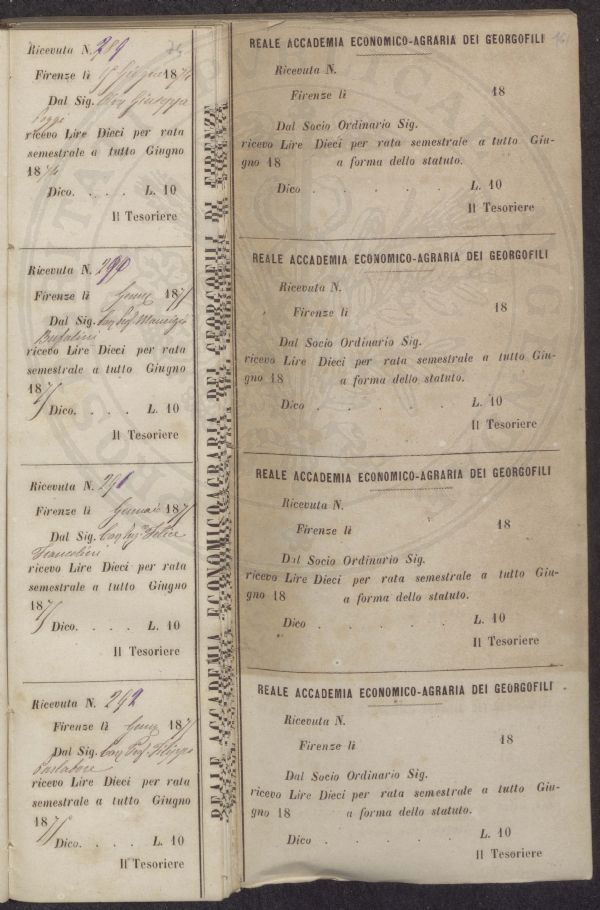 Ricevuta N. 289
Firenze li 15 Giugno 1874
Dal Sig. Giuseppe
Poggi
ricevo Lire Dieci per rata
semestrale a tutto Giugno
1874
Dico. . . . L. 10
Il Tesoriere
Ricevuta N. 290
Firenze li 187
Dal Sig. Maurizio
Bufalini
ricevo Lire Dieci per rata
semestrale a tutto Giugno
187
Dico. . . . L. 10
Il Tesoriere
Ricevuta N. 291
Firenze li Gennaio 187
Dal Sig. Felice
Francolini
ricevo Lire Dieci per rata
semestrale a tutto Giugno
187
Dico. . . . L. 10
Il Tesoriere
Ricevuta N. 292
Firenze li 187
Dal Sig. Filippo
Parlatore
ricevo Lire Dieci per rata
semestrale a tutto Giugno
187
Dico. . . . L. 10
Il Tesoriere
REALE ACCADEMIA ECONOMICO AGRARIA DEI GEORGOFILI DI FIRENZE
REALE ACCADEMIA ECONOMICO-AGRARIA DEI GEORGOFILI
Ricevuta N.
Firenze li 18
Dal Socio Ordinario Sig.
ricevo Lire Dieci per rata semestrale a tutto Giu-
gno 18 a forma dello statuto.
Dico . . . . L. 10
Il Tesoriere
REALE ACCADEMIA ECONOMICO-AGRARIA DEI GEORGOFILI
Ricevuta N.
Firenze li 18
Dal Socio Ordinario Sig.
ricevo Lire Dieci per rata semestrale a tutto Giu-
gno 18 a forma dello statuto.
Dico . . . . L. 10
Il Tesoriere
REALE ACCADEMIA ECONOMICO-AGRARIA DEI GEORGOFILI
Ricevuta N.
Firenze li 18
Dal Socio Ordinario Sig.
ricevo Lire Dieci per rata semestrale a tutto Giu-
gno 18 a forma dello statuto.
Dico . . . . L. 10
Il Tesoriere
REALE ACCADEMIA ECONOMICO-AGRARIA DEI GEORGOFILI
Ricevuta N.
Firenze li 18
Dal Socio Ordinario Sig.
ricevo Lire Dieci per rata semestrale a tutto Giu-
gno 18 a forma dello statuto.
Dico . . . . L. 10
Il Tesoriere